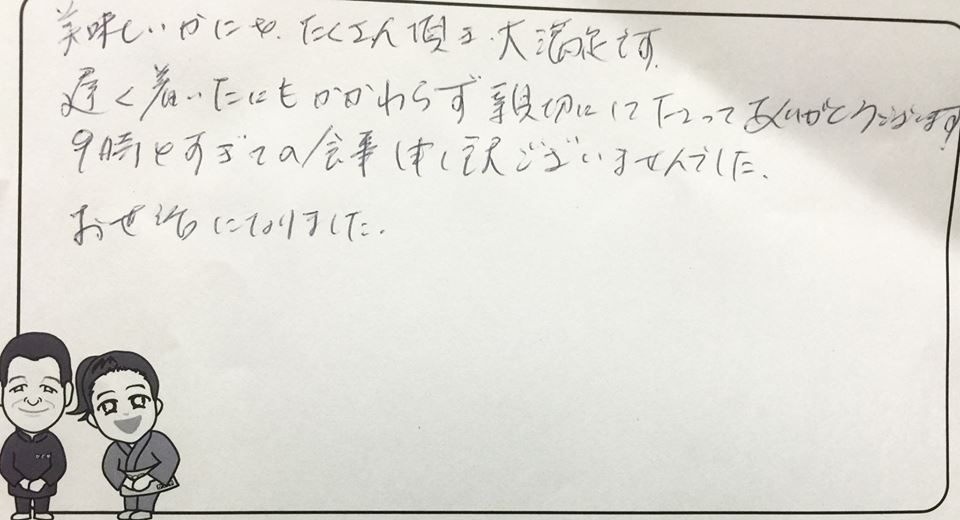 美味しいかにを、たくさん頂き、大満足です。
遅く着いたにもかかわらず親切にして下さってありがとうございます!
9時をすぎての食事申し訳ございませんでした。
お世話になりました。